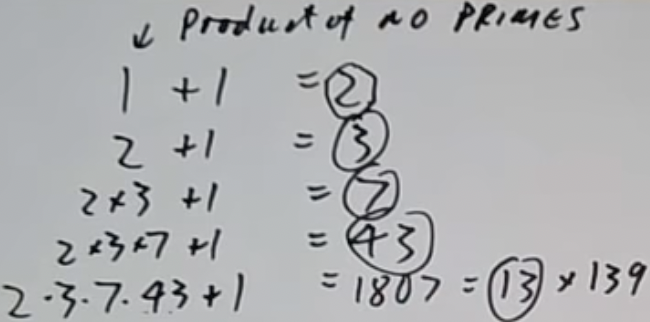 ↙ Product of no PRIMES
1 + 1 = 2
2 + 1 = 3
2×3 +1 = 7
2×3×7 +1 = 43
2·3·7·43+1 = 1807 = 13 × 139